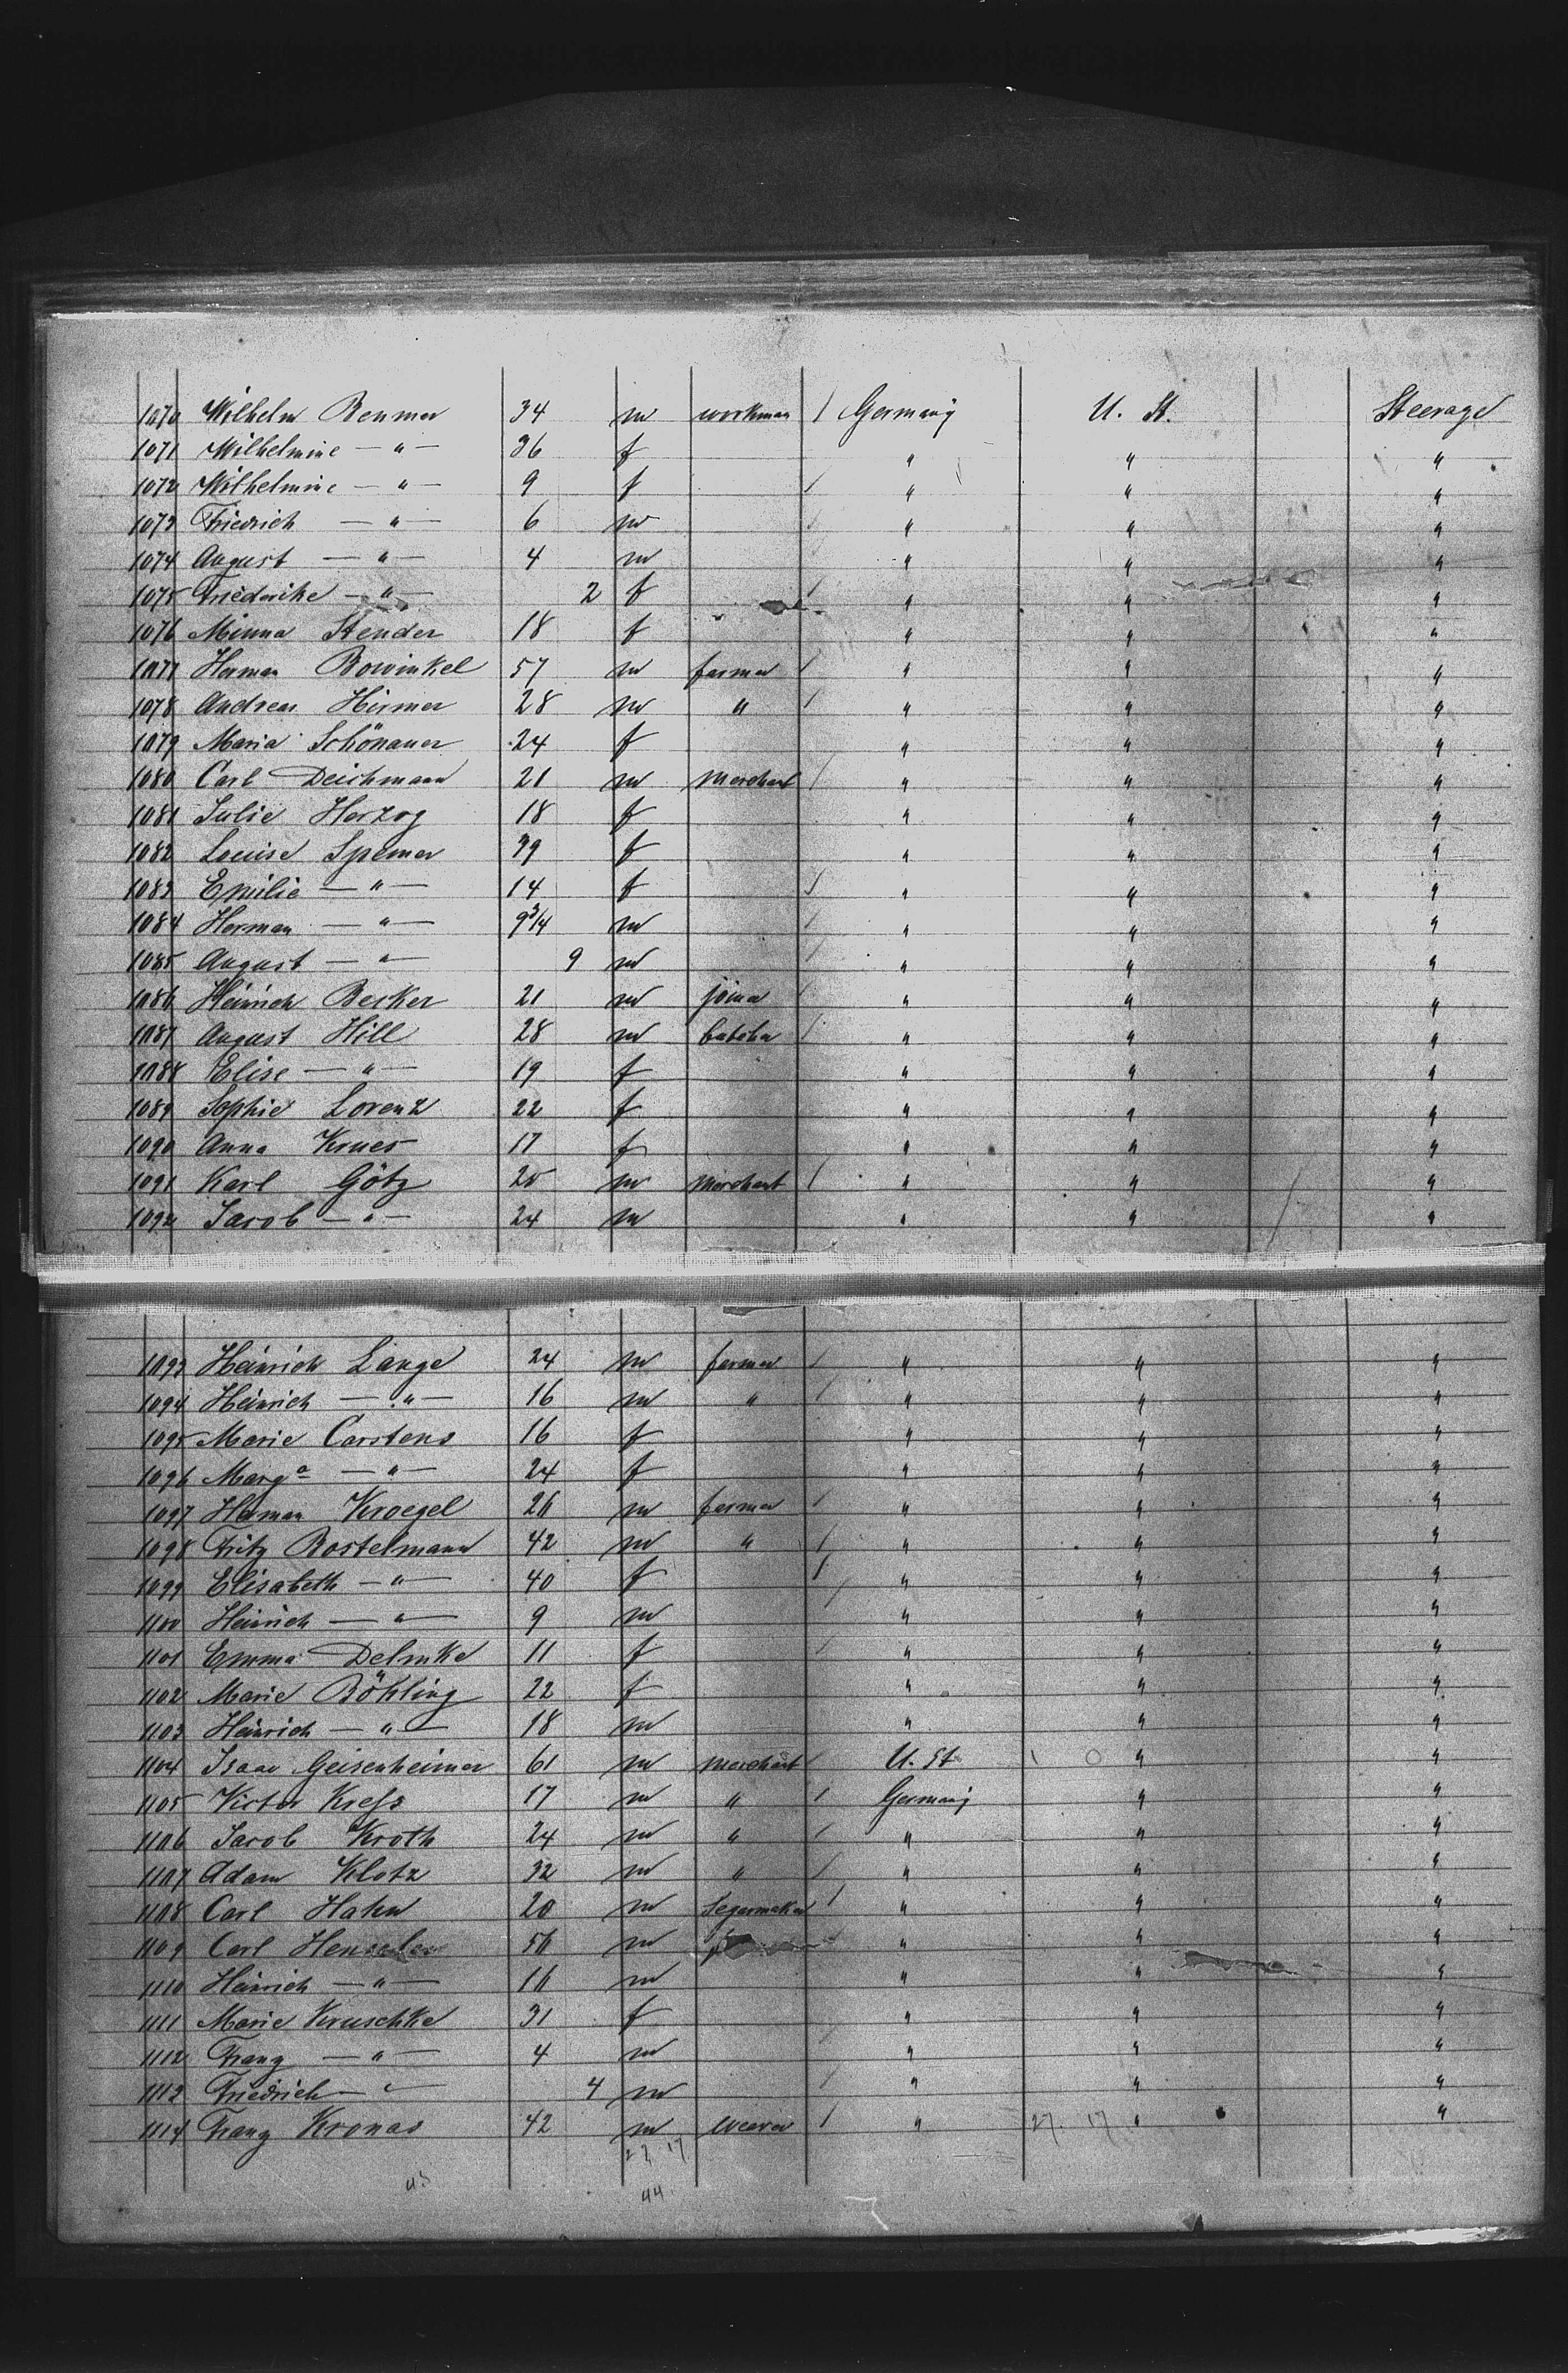 1070 Wilhelm Benmer 34 m workman / Germany U. St. Steerage
1071 Wilhelmine — " — 36 f " " "
1072 Wilhelmine — " — 9 f / " " "
1073 Friedrich — " — 6 m / " " "
1074 August — " — 4 m " " "
1075 Friederike — " — 2 f / " " "
1076 Minna Stender 18 f " " "
1077 Herman Bowinkel 57 m farmer / " " "
1078 Andreas Hirmer 28 m " / " " "
1079 Maria Schönauer 24 f " " "
1080 Carl Deichmann 21 m merchant / " " "
1081 Julie Herzog 18 f " " "
1082 Louise Spemer 39 f " " "
1083 Emilie — " — 14 f / " " "
1084 Herman — " — 9 3/4 m / " " "
1085 August — " — 9 m / " " "
1086 Heinrich Becker 21 m joiner / " " "
1087 August Hill 28 m butcher / " " "
1088 Elise — " — 19 f " " "
1089 Sophie Lorenz 22 f " " "
1090 Anna Krues 17 f " " "
1091 Karl Götz 25 m merchant / " " "
1092 Jacob — " — 24 m " " "
1093 Heinrich Lange 24 m farmer / " " "
1094 Heinrich — " — 16 m " / " " "
1095 Marie Carstens 16 f " " "
1096 Marga — " — 24 f " " "
1097 Herman Kroegel 26 m farmer / " " "
1098 Fritz Bostelmann 42 m " / " " "
1099 Elisabeth — " — 40 f / " " "
1100 Heinrich — " — 9 m " " "
1101 Emma Delmke 11 f / " " "
1102 Marie Böhling 22 f " " "
1103 Heinrich — " — 18 m " " "
1104 Isaac Geisenheimer 61 m merchant / U. St. " "
1105 Victor Kress 17 m " / Germany " "
1106 Jacob Kroth 24 m " / " " "
1107 Adam Klotz 32 m " / " " "
1108 Carl Hahn 20 m Segarmaker / " " "
1109 Carl Henseler 56 m " " "
1110 Heinrich — " — 16 m " " "
1111 Marie Kruschke 31 f " " "
1112 Franz — " — 4 m " " "
1113 Friedrich — " — 4 m / " " "
1114 Franz Kronas 42 m weaver / " 27. 17 " "
27 17
43 44